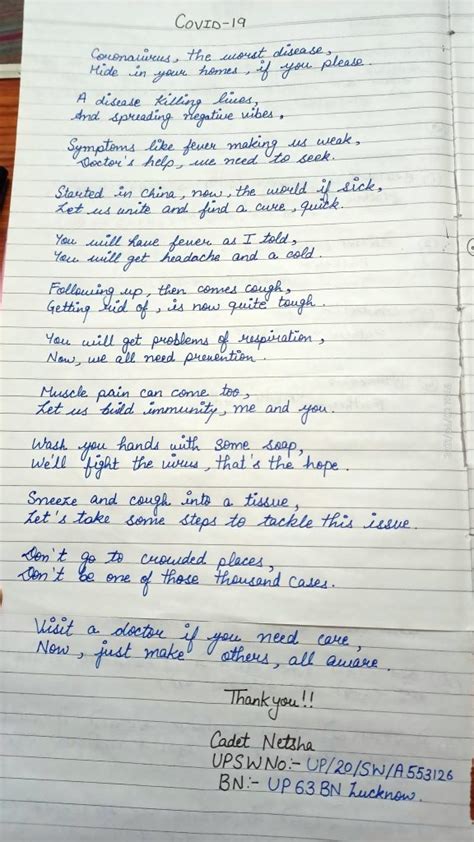 COVID-19
Coronavirus, the worst disease,
Hide in your homes, if you please.
A disease killing lives,
And spreading negative vibes,
Symptoms like fever making us weak,
Doctor's help, we need to seek.
Started in China, now, the world if sick,
Let us unite and find a cure, quick.
You will have fever as I told,
You will get headache and a cold.
Following up, then comes cough,
Getting rid of, is now quite tough.
You will get problems of respiration,
Now, we all need prevention.
Muscle pain can come too,
Let us build immunity, me and you.
Wash you hands with some soap,
We'll fight the virus, that's the hope.
Sneeze and cough into a tissue,
Let's take some steps to tackle this issue.
Don't go to crowded places,
Don't be one of those thousand cases.
Visit a doctor if you need care,
Now, just make others, all aware.
Thank you!!
Cadet Netsha
UPSW No:- UP/20/SW/A553126
BN:- UP 63 BN Lucknow.